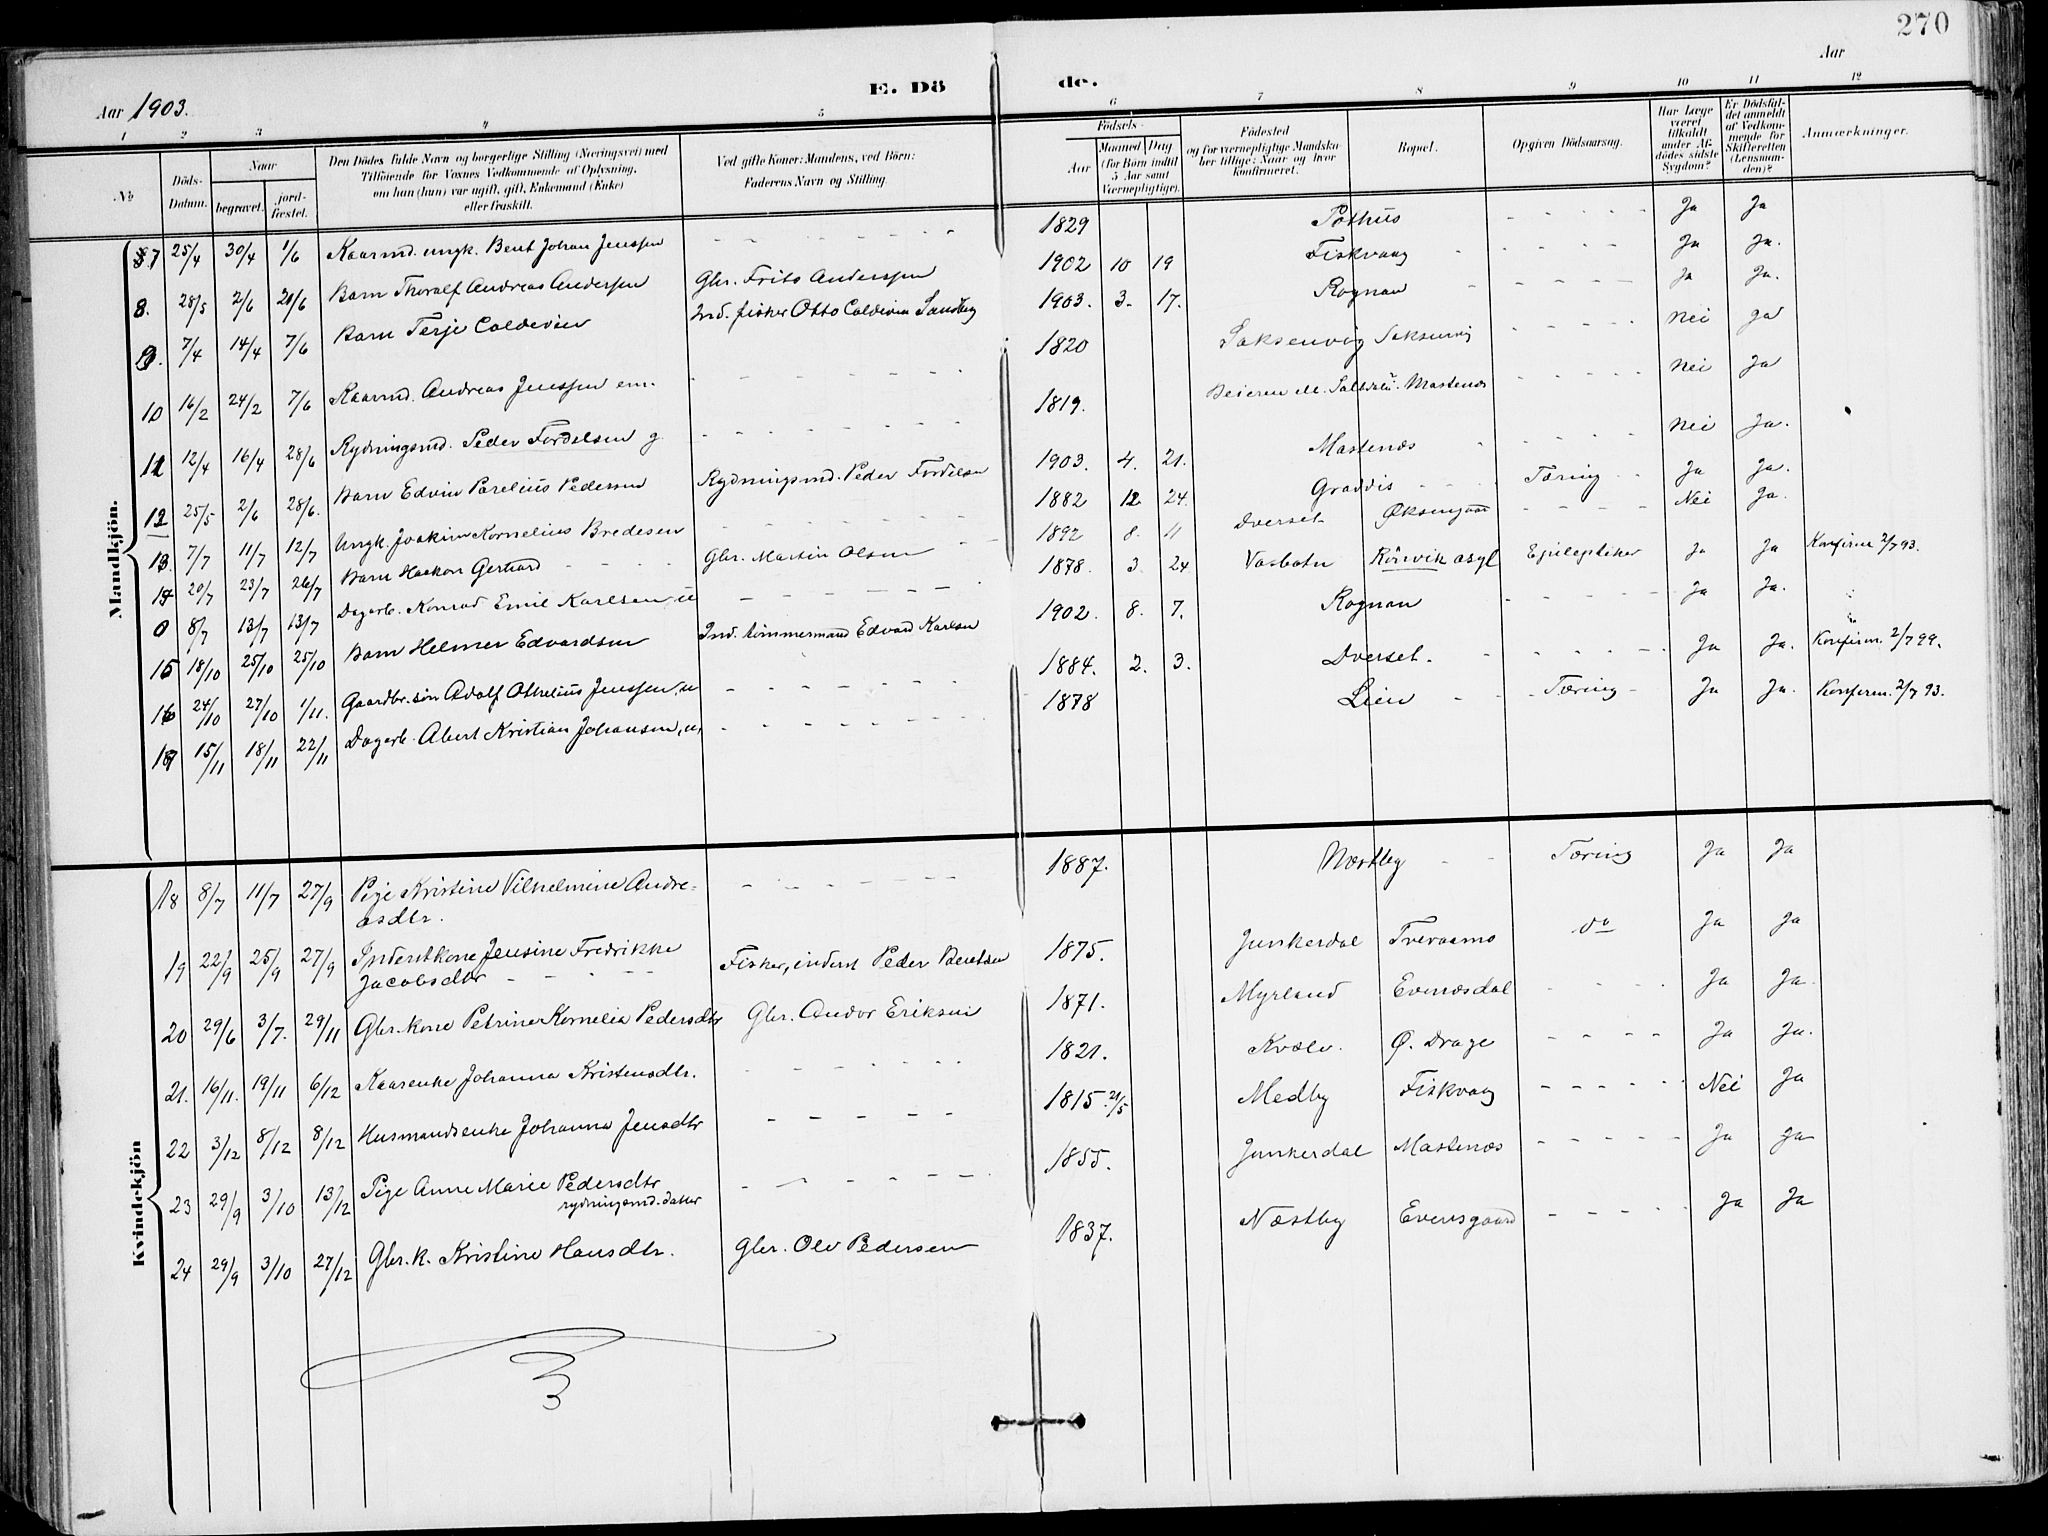 270
E. Döde.
Aar 1903.
Aar
1 2 3 4 5 6 7 8 9 10 11 12
No
Döds-Datum.
Naar
begravet.
jord-fæstet.
Den Dödes fulde Navn og borgerlige Stilling (Næringsvei) med
Tilföiende for Voxnes Vedkommende af Oplysning,
om han (hun) var ugift, gift, Enkemand (Enke)
eller fraskilt.
Ved gifte Koner: Mandens, ved Börn:
Faderens Navn og Stilling
Födsels-
Aar
Maaned Dag
(for Börn indtil 5 Aar samt Værnepligtige).
Födested
og for værnepligtige Mandska-
ber tillige: Naar og hvor
konfirmeret.
Bopæl.
Opgiven Dödsaarsag.
Har Læge været tilkaldt under Af-dödes sidste Sygdom?
Er Dödsfal-det anmeldt af Vedkom-mende for Skifteretten (Lensman-den)?
Anmærkninger.
Mandkjön.
7 25/4 30/4 1/6 Kaarmd. ungk. Bent Johan Jenssen - - - 1829 Pothus - - - Ja Ja
8. 28/5 2/6 21/6 Barn Thoralf Andreas Andersen Gbr. Frits Anderssen 1902 10 19 Fiskvaag - Ja Ja.
9. 7/4 14/4 7/6 Barn Terje Coldevin Ind. fisker Otto Coldevin Sandberg 1903. 3. 17. Rognan - - - Ja Ja.
10 16/2 24/2 7/6 Kaarmd. Andreas Jenssen em. - - - 1820 Saksenvig Saksenvig - - - Nei Ja
11 12/4 16/4 28/6 Rydningsmd. Peder Fordelsen g. - - - 1819. Beieren Mastenes - - - Nei Ja
12 25/5 2/6 28/6. Barn Edvin Parelius Pedersen Rydningsmd. Peder Fordelsen 1903. 4. 21. Mastenæs - - - Nei Ja.
13. 7/7 11/7 12/7 Ungk. Joakim Kornelius Bredesen - - - 1882 12 24. Graddis - - Tæring - - Ja Ja.
14 20/7 23/7 26/7 Barn Haakon Gerhard - - - Gbr. Martin Olsen - - 1892 8. 11 Dverset Øksengaard - - - Nei Ja.
0 8/7 13/7 13/7 Dagarb. Konrad Emil Karlsen, u - - - 1878. 3. 24 Vasbotn Rönvik asyl Epileptiker Ja Ja Konfirm 2/7 93.
15 18/10 25/10 25/10 Barn Helmer Edvardsen Ind. tömmermand Edvard Karlsen 1902. 8. 7. Rognan - - - Ja Ja.
16 24/10 27/10 1/11. Gaardbr. sön Adolf Othelius Jenssen, u - - - 1884. 2. 3. Dverset. - - - Ja Ja. Konfirm. 2/7 99.
15/11 18/11 22/11 Dagarb. Abert Kristian Johansen, u, - - - 1878 Lien - - Tæring - Ja Ja. Konfirm. 2/7 93.
Kvindekjön
18 8/7 11/7 27/9 Pige Kristine Vilhelmine Andre-
asdtr. - - - 1887. Næstby - - Tæring Ja Ja
19 22/9 25/9 27/9 Inderstkone Jensine Fredrikke
Jacobsdtr - - - Fisker, inderst Peder Bentsen 1875. Junkerdal Tveraamo do Ja Ja
20 29/6 3/7. 29/11 Gbr. kone Petrine Kornelia Pedersdtr Gbr. Andor Eriksen 1871. Myrland Evenesdal - - - Ja Ja.
21. 16/11. 19/11 6/12 Kaarenke Johanna Kristensdtr. - - - 1821. Kvæle. Ø. Drage - - - Ja Ja.
22 3/12 8/12 8/12 Husmandsenke Johanna Jensdtr - - - 1815. 21/5 Medby Fiskvaag - - - Nei Ja
23 29/9 3/10 13/12 Pige Anne Marie Pedersdtr
rydningsmd. datter - - - 1855. Junkerdal Mastenæs - - - Ja Ja
24 29/9 3/10 27/12 Gbr. k. Kristine Hansdtr. Gbr. Ole Pedersen 1837. Næstby Evensgaard - - - Ja Ja